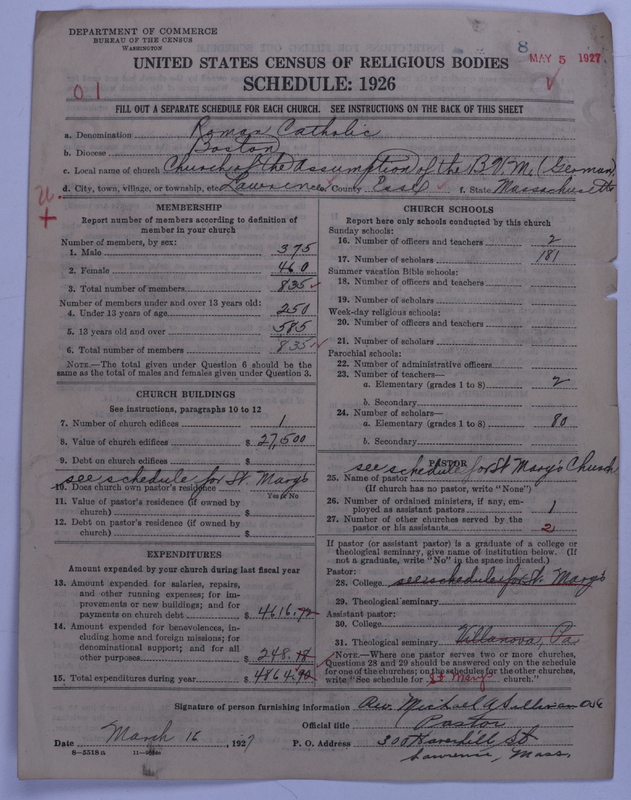 DEPARTMENT OF COMMERCE
BUREAU OF THE CENSUS
WASHINGTON
8
MAY 5 1927
UNITED STATES CENSUS OF RELIGIOUS BODIES
SCHEDULE: 1926
01
FILL OUT A SEPARATE SCHEDULE FOR EACH CHURCH. SEE INSTRUCTIONS ON THE BACK OF THIS SHEET
a. Denomination Roman Catholic
b. Diocese Boston
c. Local name of church Church of the Assumption of the B.V.M. (German)
d. City, town, village, or township, etc. Lawrence e. County Essex f. State Massachusetts
MEMBERSHIP
Report number of members according to definition of
member in your church
Number of members, by sex:
1. Male 375
2. Female 460
3. Total number of members 835
Number of members under and over 13 years old:
4. Under 13 years of age 250
5. 13 years old and over 585
6. Total number of members 835
NOTE.—The total given under Question 6 should be the
same as the total of males and females given under Question 3.
CHURCH BUILDINGS
See instructions, paragraphs 10 to 12
7. Number of church edifices 1
8. Value of church edifices $ 27,500
9. Debt on church edifices $
see schedule for St Mary's
10. Does church own pastor's residence Yes No
11. Value of pastor's residence (if owned by
church) $
12. Debt on pastor's residence (if owned by
church) $
EXPENDITURES
Amount expended by your church during last fiscal year
13. Amount expended for salaries, repairs,
and other running expenses; for im-
provements or new buildings; and for
payments on church debt $ 4616.72
14. Amount expended for benevolences, in-
cluding home and foreign missions; for
denominational support; and for all
other purposes $ 248.18
15. Total expenditures during year $ 4864.90
CHURCH SCHOOLS
Report here only schools conducted by this church
Sunday schools:
16. Number of officers and teachers 2
17. Number of scholars 181
Summer vacation Bible schools:
18. Number of officers and teachers
19. Number of scholars
Week-day religious schools:
20. Number of officers and teachers
21. Number of scholars
Parochial schools:
22. Number of administrative officers
23. Number of teachers—
a. Elementary (grades 1 to 8) 2
b. Secondary
24. Number of scholars—
a. Elementary (grades 1 to 8) 80
b. Secondary
PASTOR
see schedule for St Mary's Church
25. Name of pastor
(If church has no pastor, write "None")
26. Number of ordained ministers, if any, em-
ployed as assistant pastors 1
27. Number of other churches served by the
pastor or his assistants 2
If pastor (or assistant pastor) is a graduate of a college or
theological seminary, give name of institution below. (If
not a graduate, write "No" in the space indicated.)
Pastor:
28. College see schedule for St. Mary's
29. Theological seminary
Assistant pastor:
30. College
31. Theological seminary Villanova, Pa
NOTE.—Where one pastor serves two or more churches,
Questions 28 and 29 should be answered only on the schedule
for one of the churches; on the schedules for the other churches,
write "See schedule for St Mary church."
Signature of person furnishing information Rev. Michael A Sullivan O.S.A
Official title Pastor
Date March 16, 1927 P. O. Address 300 Haverhill St
Lawrence, Mass.
8—5518a